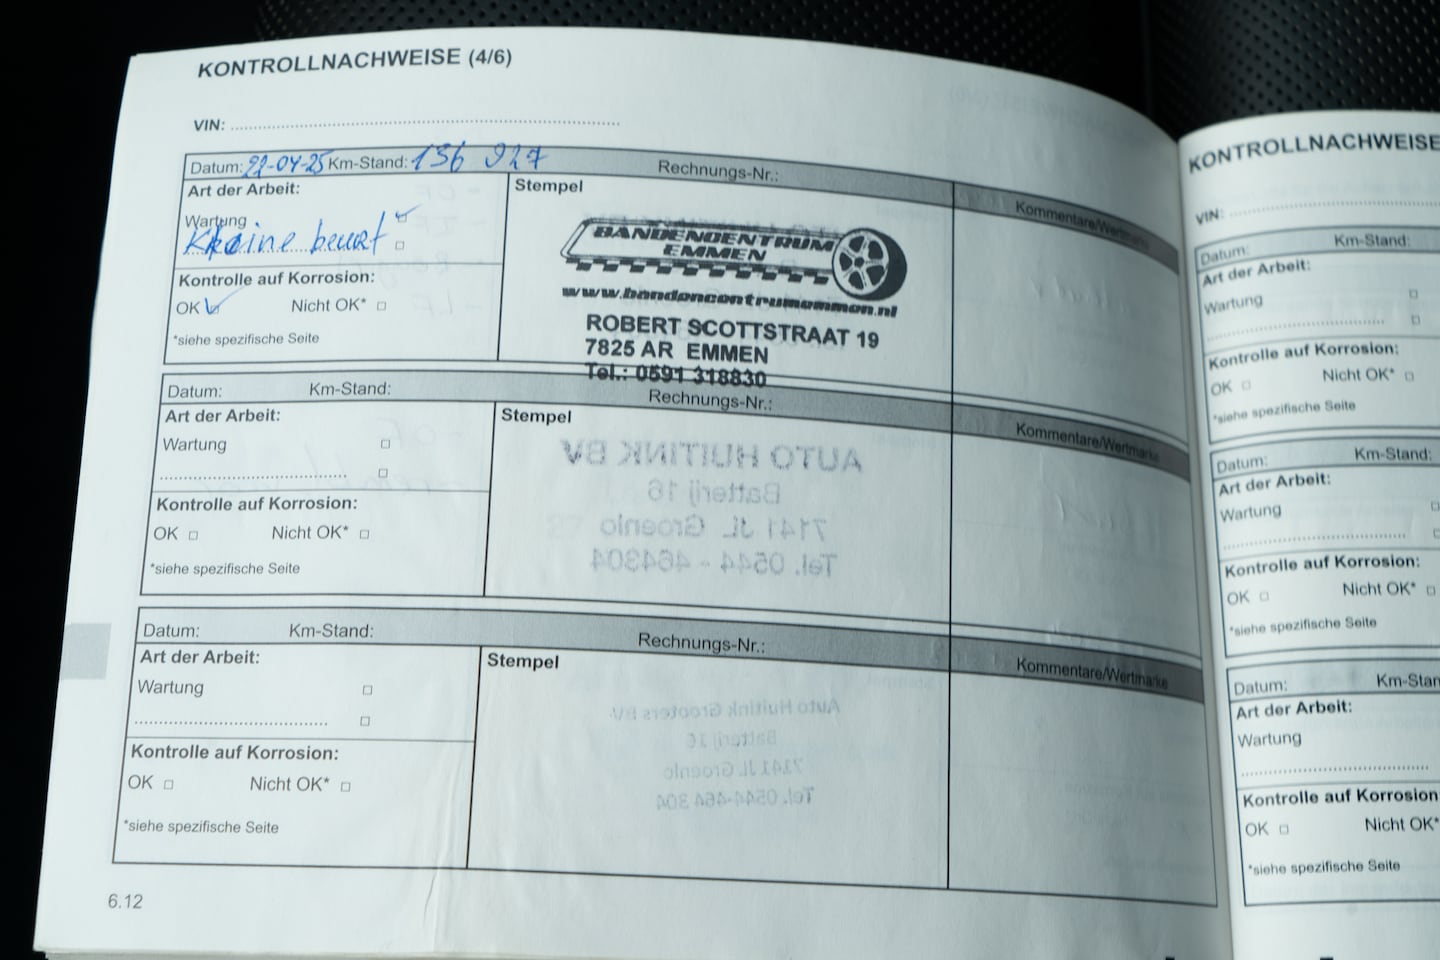 KONTROLLNACHWEISE (4/6)
VIN:
Datum: 22-04-25 Km-Stand: 136 927 Rechnungs-Nr.:
Art der Arbeit:
Stempel
Kommentare/Wertmarke
Wartung
Kleine beurt
BANDENCENTRUM
EMMEN
www.bandencentrumemmen.nl
ROBERT SCOTTSTRAAT 19
7825 AR EMMEN
Tel.: 0591 318830
Kontrolle auf Korrosion:
OK Nicht OK*
*siehe spezifische Seite
Datum: Km-Stand: Rechnungs-Nr.:
Art der Arbeit:
Stempel
Kommentare/Wertmarke
Wartung
AUTO HUITINK BV
Batterij 16
7141 JL Groenlo
Tel. 0544 - 464304
Kontrolle auf Korrosion:
OK Nicht OK*
*siehe spezifische Seite
Datum: Km-Stand: Rechnungs-Nr.:
Art der Arbeit:
Stempel
Kommentare/Wertmarke
Wartung
Auto Huitink Grooters BV
Batterij 16
7141 JL Groenlo
Tel. 0544-464 304
Kontrolle auf Korrosion:
OK Nicht OK*
*siehe spezifische Seite
6.12
KONTROLLNACHWEISE
VIN:
Datum: Km-Stand:
Art der Arbeit:
Wartung
Kontrolle auf Korrosion:
OK Nicht OK*
*siehe spezifische Seite
Datum: Km-Stand:
Art der Arbeit:
Wartung
Kontrolle auf Korrosion:
OK Nicht OK*
*siehe spezifische Seite
Datum: Km-Stan
Art der Arbeit:
Wartung
Kontrolle auf Korrosion
OK Nicht OK*
*siehe spezifische Seite